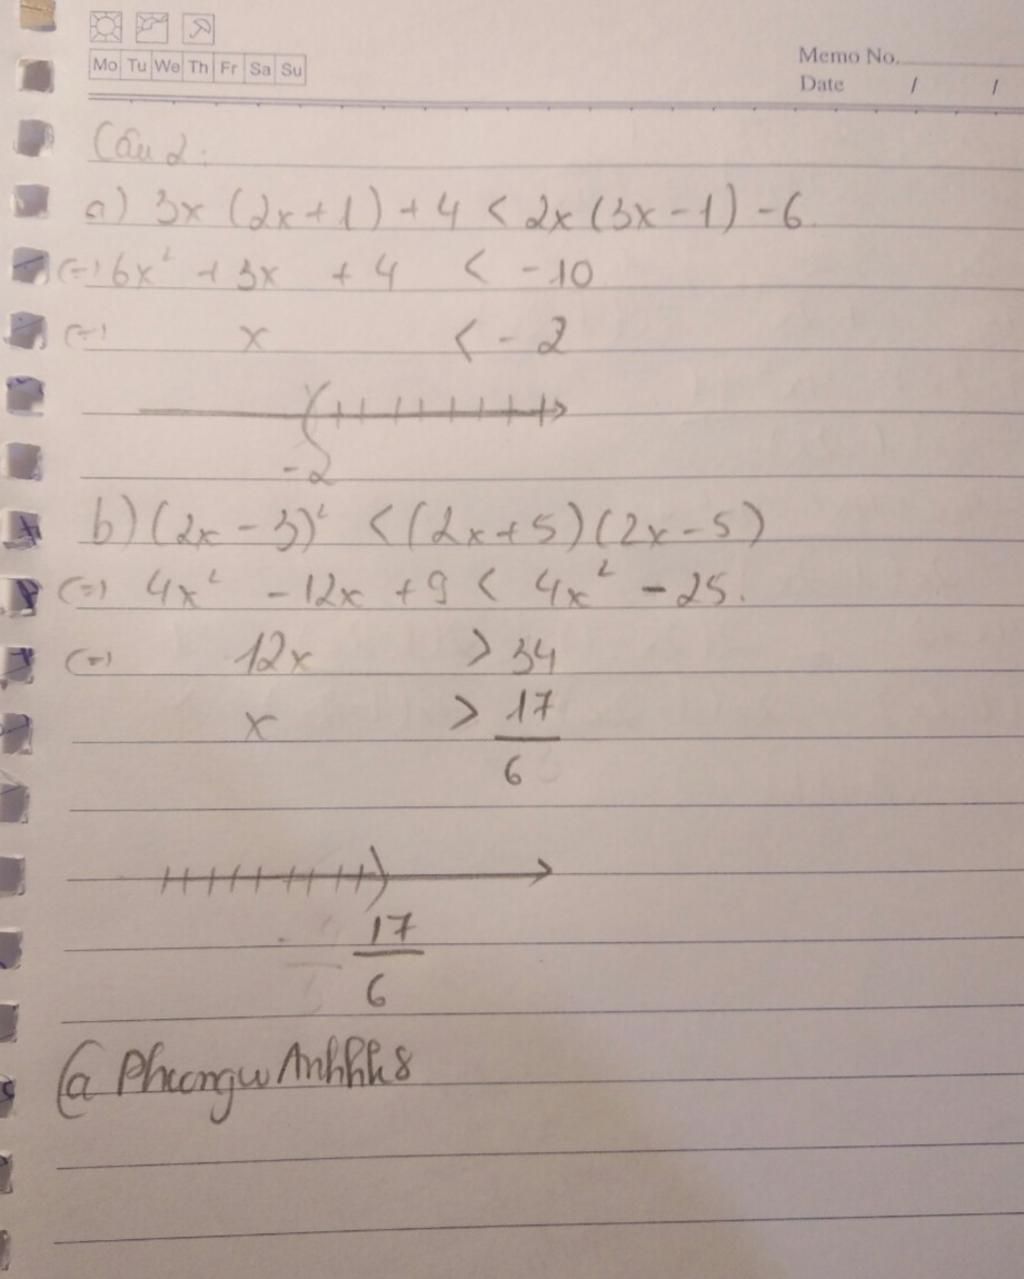 Mo Tu We Th Fr Sa Su
Memo No.
Date / /
Câu 2:
a) 3x (2x + 1) + 4 < 2x (3x - 1) - 6
(=) 6x² + 3x + 4 < -10
(=) x < -2
-2
b) (2x - 3)² < (2x + 5) (2x - 5)
(=) 4x² - 12x + 9 < 4x² - 25.
(=) 12x > 34
x > 17/6
17/6
@ PhuongwAnhhh8